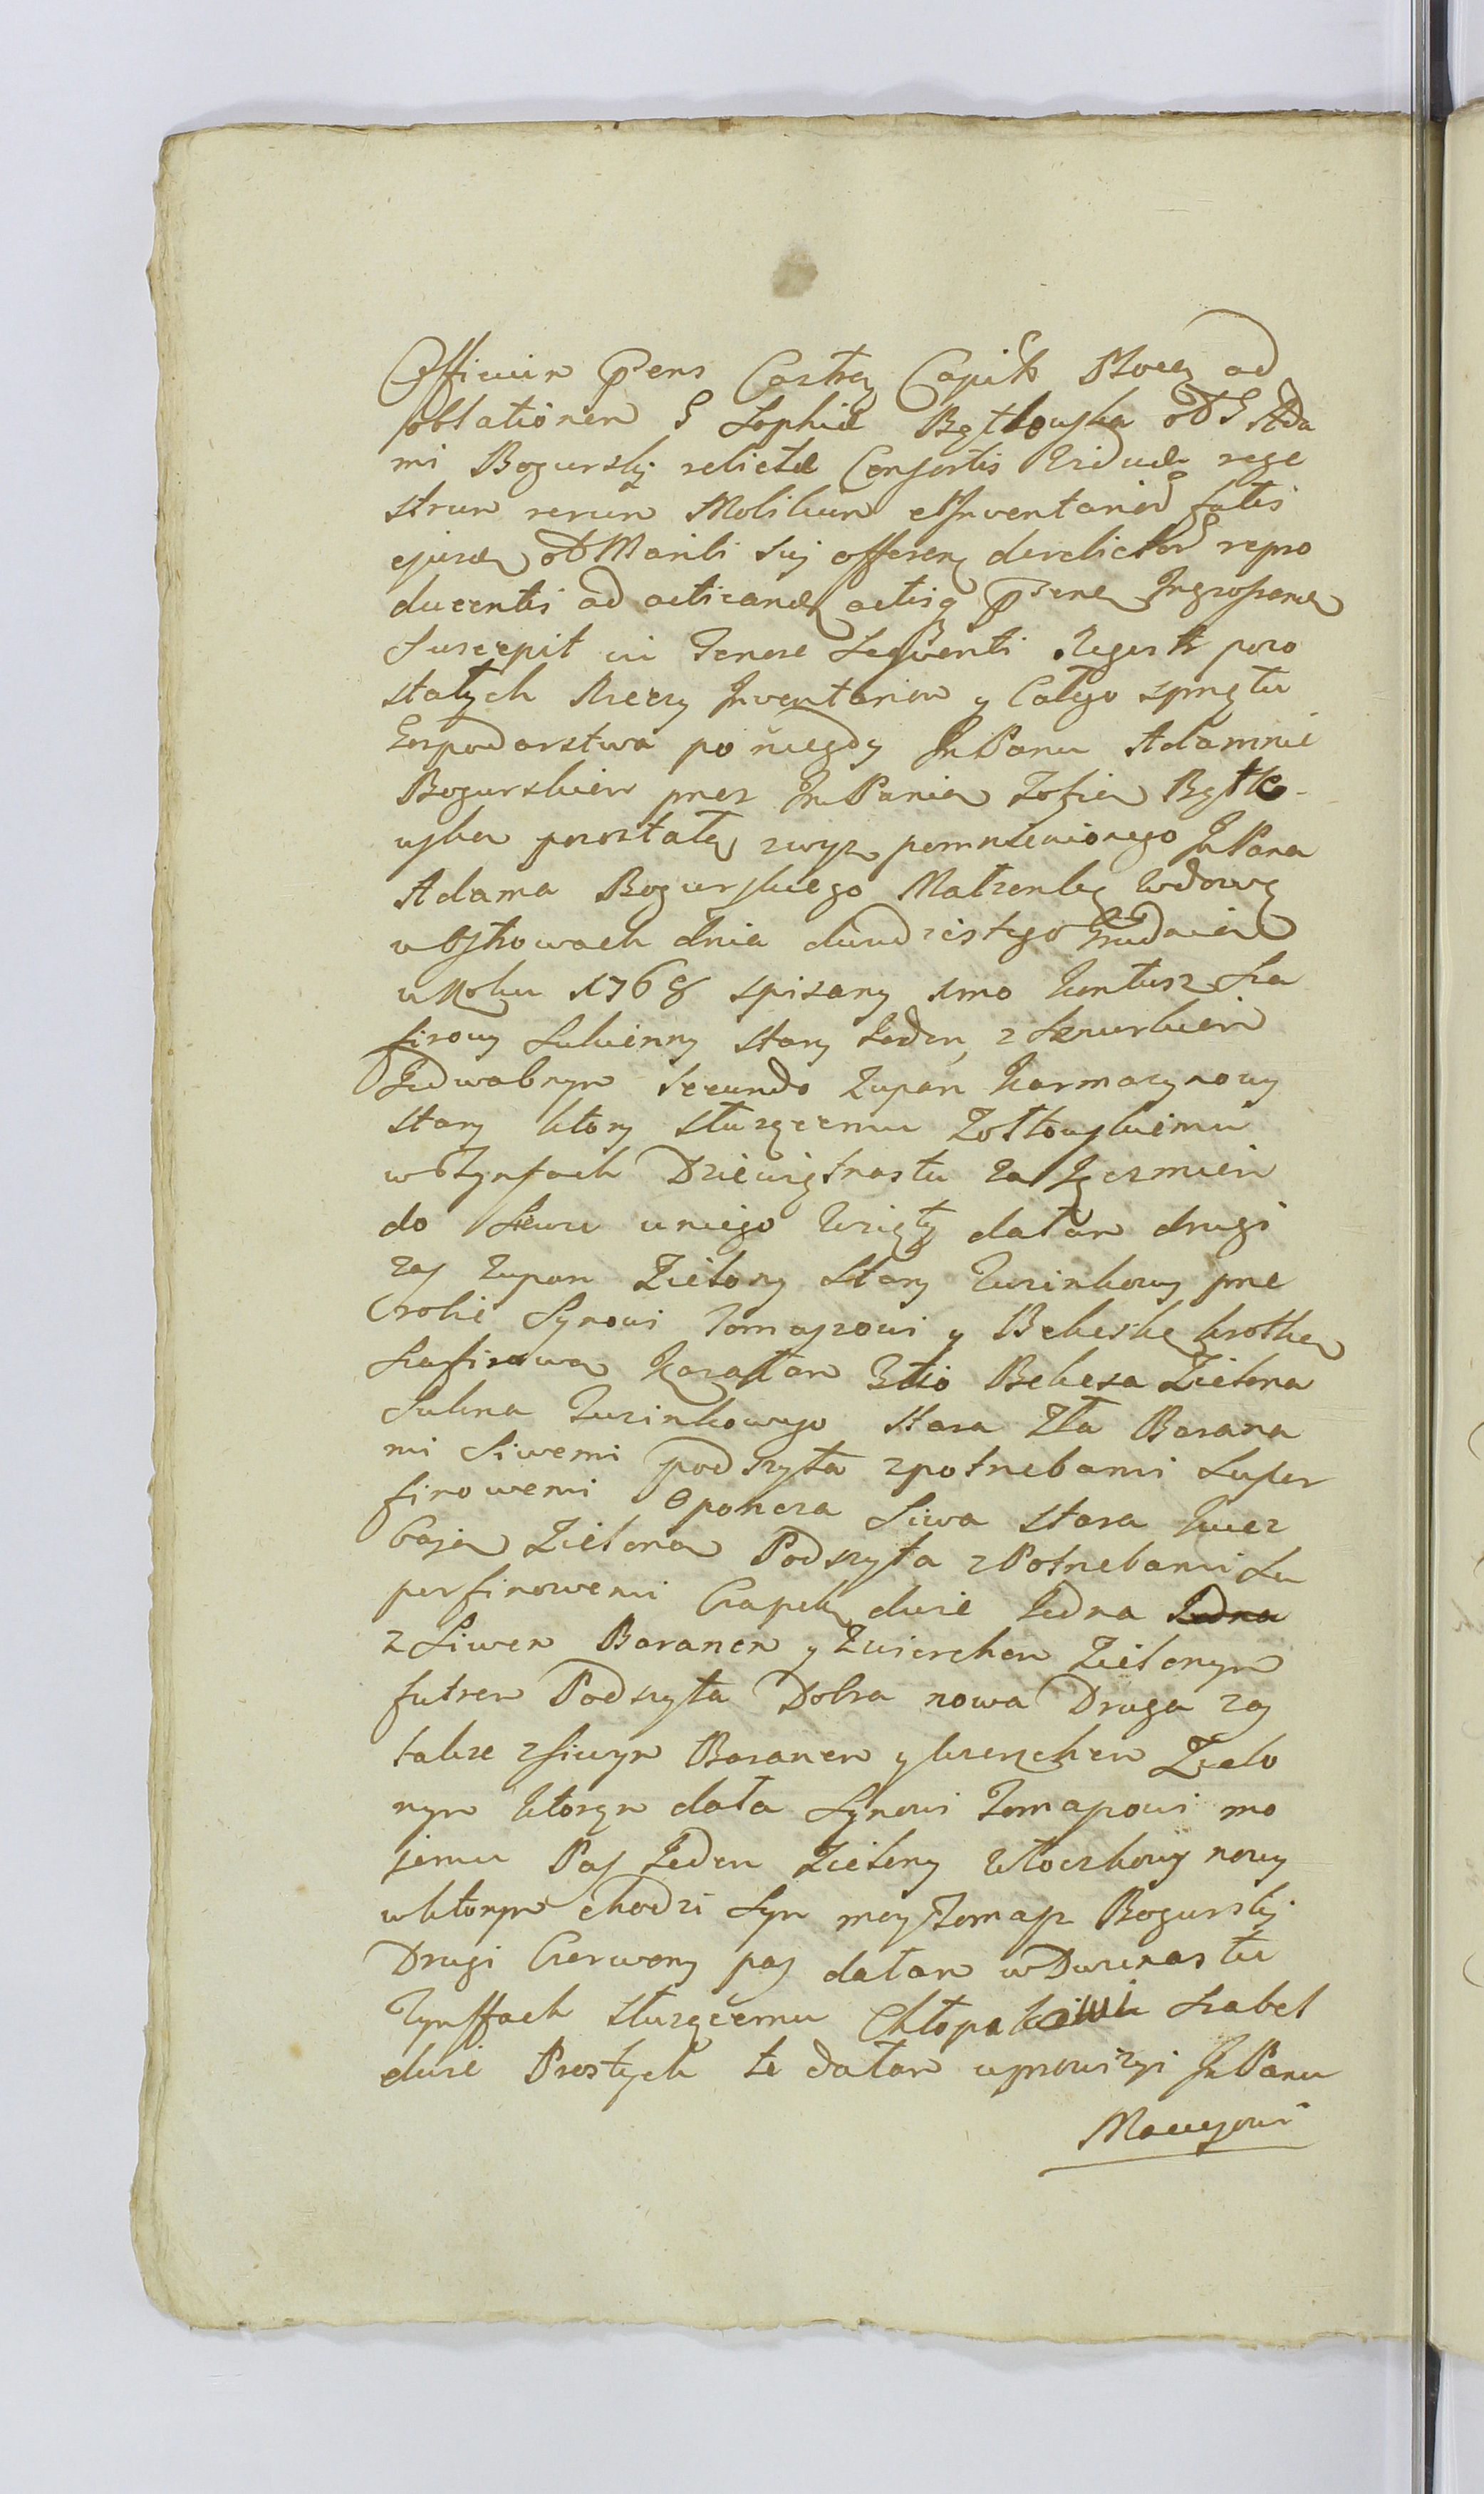 Officium pns Castren Capitle Plocen ad
oblationem G Sophiæ Bątkowska olim G Ada
mi Bogurskj relictæ Consortis Viduæ rege
strum rerum Mobilium et Inventariorum fatis
ejusdem olim Mariti sui offerens derelictorum repro
ducentis ad acticandum actisq pntibus Ingrossandum
Suscepit in Tenore Seqventi. Regestr pozo
stałych Rzeczy Inventarzow y Całego sprzętu
Gospodarstwa po niegdy Jm Panu Adamie
Bogurskiem przez Jm Panią Zofią Bątko-
wską pozostałą zwysz pomnienionego Jm Pana
Adama Bogurskiego Małzonkę Wdowę
w dnia dwudziestego Grudnia
w Roku 1768 spisany 1mo Kontusz Sza
firowy Sukienny stary Jeden, z Sznurkiem
Jedwabnym Secundo Zupan Karmazynowy
stary ktory służącemu Zołtowskiemu
w Tynfach Dziewiętnastu za Jęczmień
do Siewu u niego Wzięty dałam drugi
zas zupan Zielony stary Tuzinkowy prze
robić Synowi Tomaszowi y Bekeskę krotką
Szafirową Kazałam 3tio Bekesza Zielona
Sukna Tuzinkowego stara Zła Barana
mi Siwemi podszyta z potrzebami Super
finowemi Oponcza Siwa stara kiiez
bają Zieloną Podszyta z Potrzebami Su
perfinowemi Czapek dwie Jedna Jedna
z Siwem Baranem y Zwierchem Zielonym
futrem Podszyta Dobra nowa Druga zas
takze z siwym Baranem y wierzchem Zielo
nym ktorą dała Synowi Tomaszowi mo
jemu Pas Jeden Zielony Włoczkowy nowy
w ktorym chodzi Syn moy Tomasz Bogurskj
Drugi Czerwony pas dałam w Dwunastu
Tynffach służącemu Chłopakowi Szabel
dwie Prostych te dałam uprowizyi Jm Panu